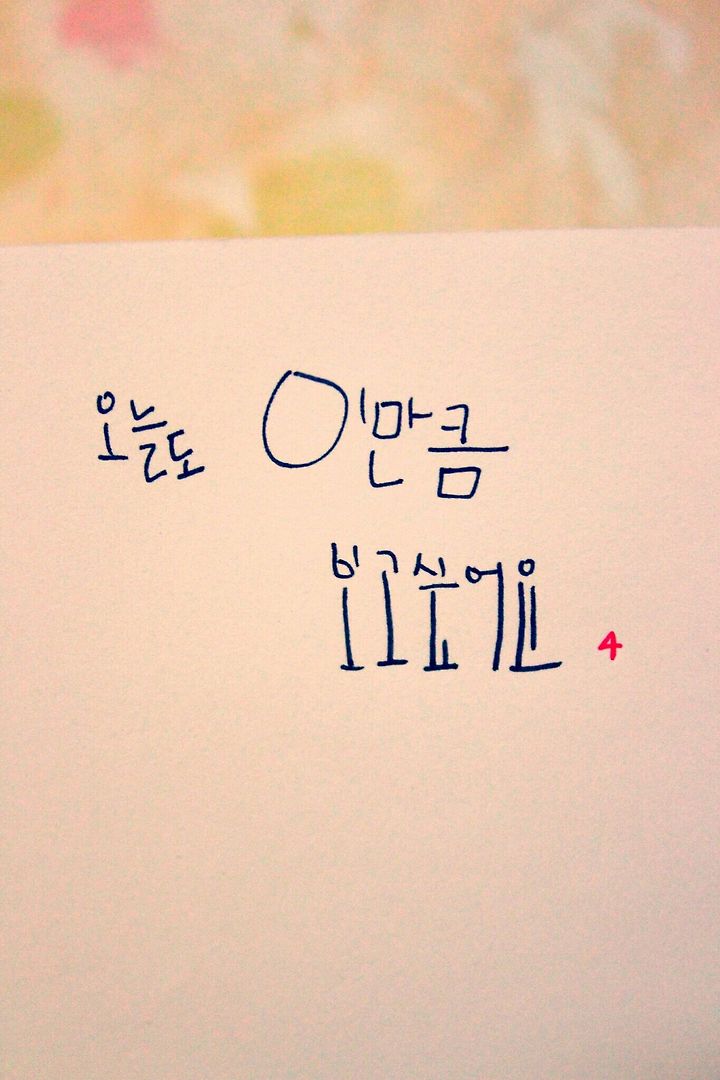 오늘도 이만큼
보고싶어요 4